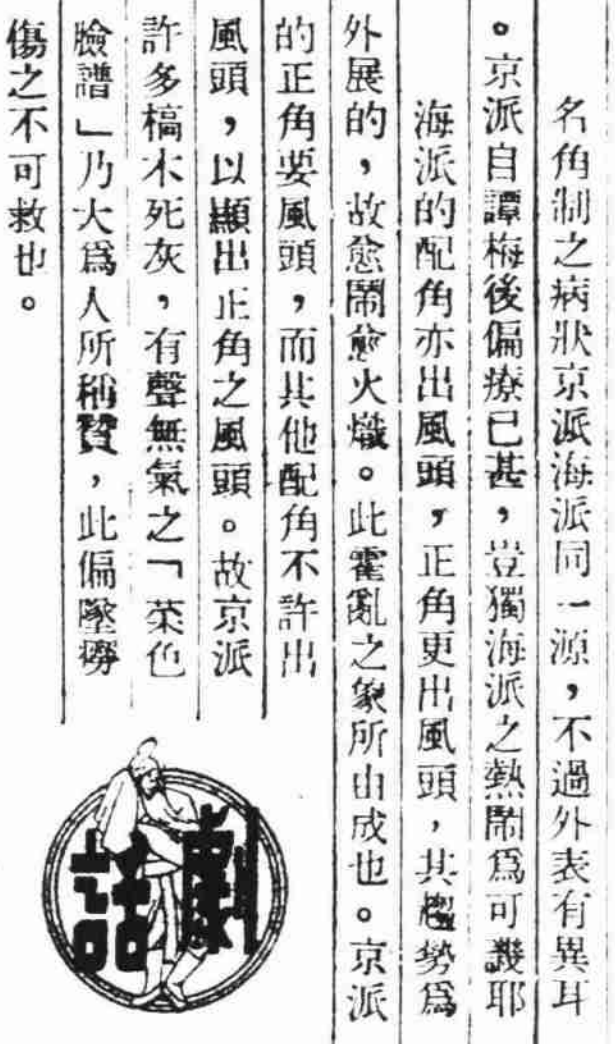 名角制之病狀京派海派同一源，不過外表有異耳
。京派自譚梅後偏療已甚，豈獨海派之熱鬧爲可譏耶
海派的配角亦出風頭，正角更出風頭，其趨勢爲
外展的，故愈鬧愈火熾。此霍亂之象所由成也。京派
的正角要風頭，而其他配角不許出
風頭，以顯出正角之風頭。故京派
許多槁木死灰，有聲無氣之「菜色
臉譜」乃大爲人所稱贊，此偏墜癆
傷之不可救也。
劇話